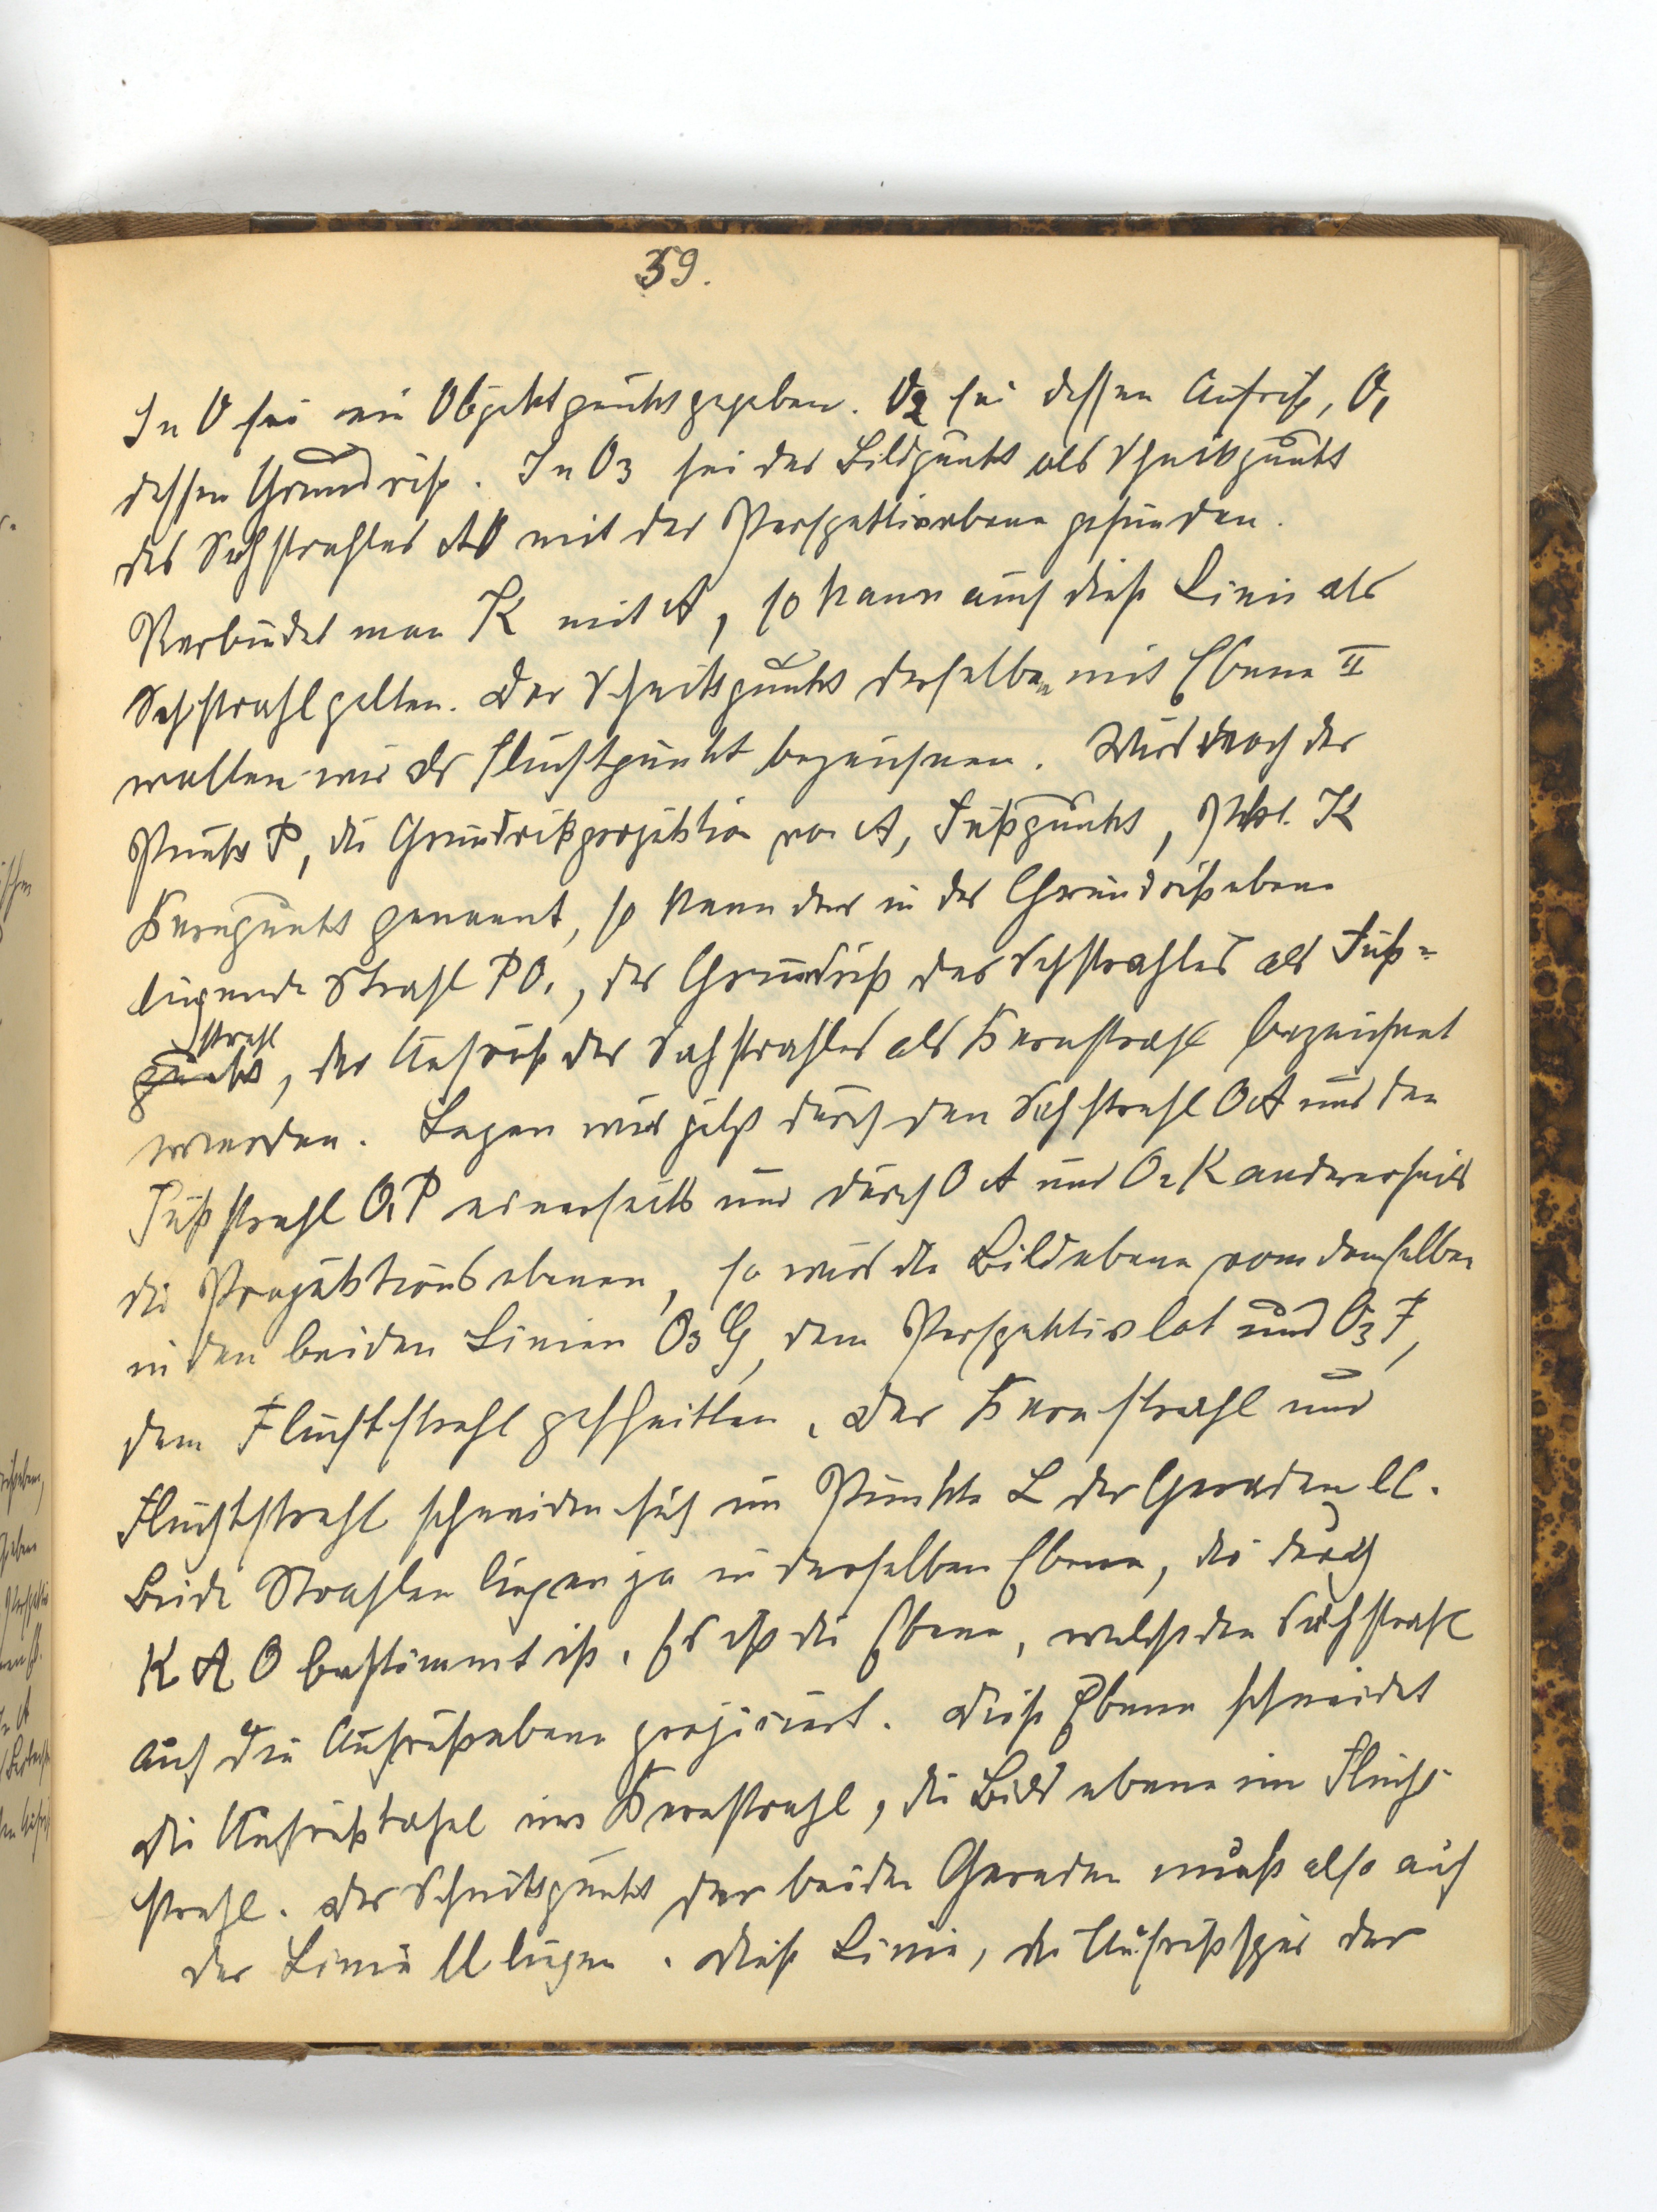 39.
In O sei ein Objektpunkt gegeben. O2 sei dessen Aufriß, O1
dessen Grundriß. In O3 sei der Bildpunkt als Schnittpunkt
des Sehstrahles AO mit der Perspektivebene gefunden.
Verbindet man K mit A, so kann auch diese Linie als
Sehstrahl gelten. Der Schnittpunkt derselben mit Ebene II
wollen wir als Fluchtpunkt bezeichnen. Wird noch der
Punkt P, die Grundrißprojektion von A, Fußpunkt, Pkt. K
Kernpunkt genannt, so kann der in der Grundrißebene
liegende Strahl PO1, der Grundriß des Sehstrahles als Fuß=
strahl
punkt, der Aufriß des Sehstrahles als Kernstrahl bezeichnet
werden. Legen wir jetzt durch den Sehstrahl OA und den
Fußstrahl O1P einerseits und durch OA und O2K andererseits
die Projektionsebenen, so wird die Bildebene von denselben
in den beiden Linien O3G, dem Perspektivlot und O3F,
dem Fluchtstrahl geschnitten. Der Kernstrahl und
Fluchtstrahl schneiden sich im Punkte L der Geraden ll.
Beide Strahlen liegen ja in derselben Ebene, die durch
K A O bestimmt ist. Es ist die Ebene, welche den Sehstrahl
auf die Aufrißebene projiciert. Diese Ebene schneidet
die Aufrißtafel im Kernstrahl, die Bildebene im Flucht-
strahl. Der Schnittpunkt der beiden Geraden muß also auf
der Linie ll liegen. Diese Linie, die Aufrißspur der